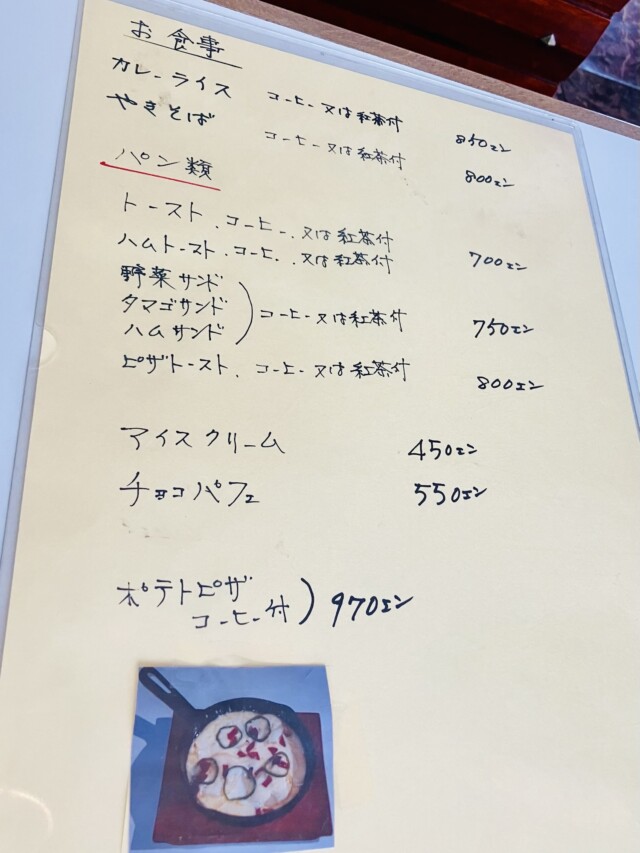 お食事
カレーライス コーヒー又は紅茶付 850エン
やきそば コーヒー又は紅茶付 800エン
パン類
トースト.コーヒー.又は紅茶付
ハムトースト.コーヒー.又は紅茶付 700エン
野菜サンド
タマゴサンド コーヒー又は紅茶付 750エン
ハムサンド
ピザトースト.コーヒー又は紅茶付 800エン
アイスクリーム 450エン
チョコパフェ 550エン
ポテトピザ
コーヒー付 ) 970エン